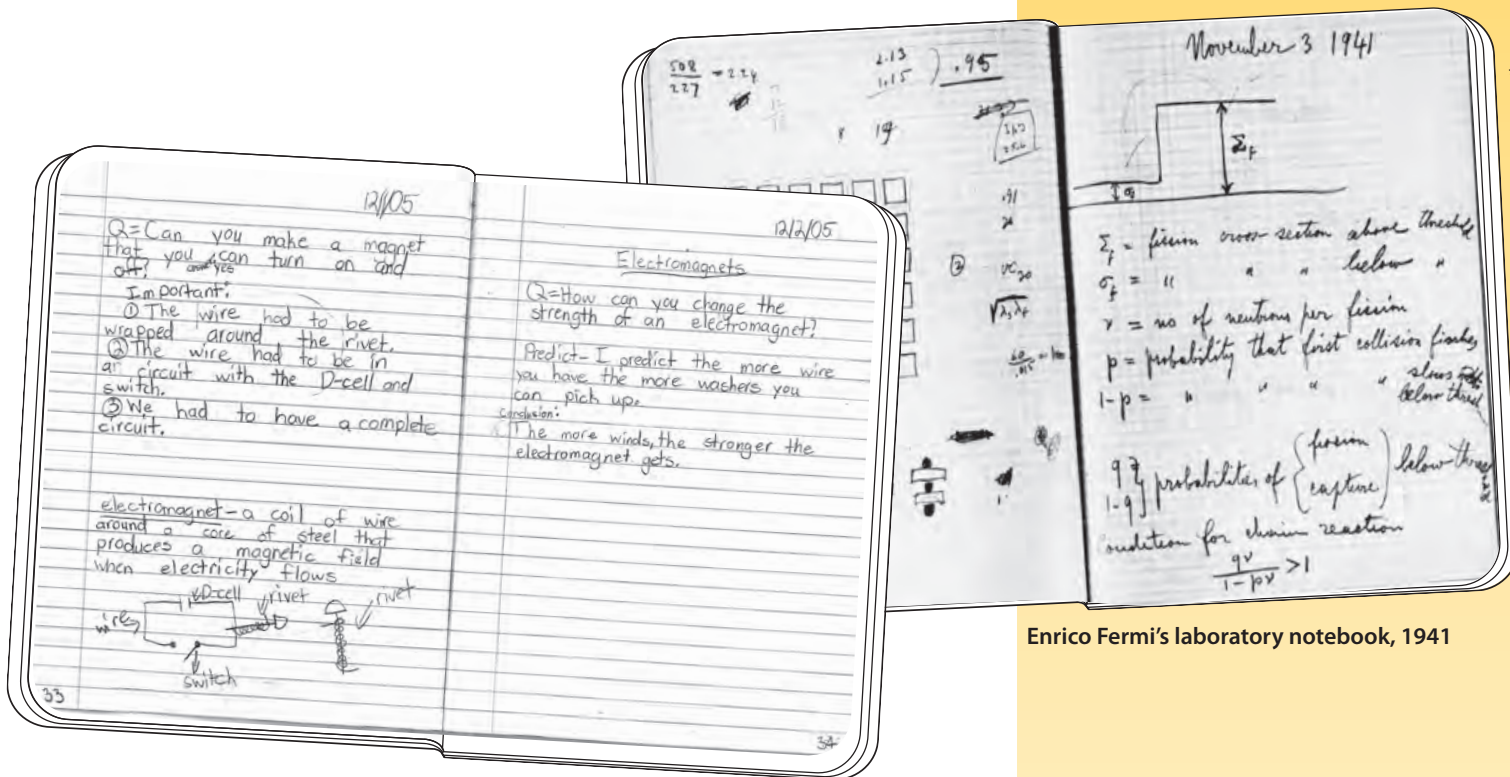 12/1/05
Q=Can you make a magnet
that you can turn on and
off? yes
Important:
① The wire had to be
wrapped around the rivet.
② The wire had to be in
a circuit with the D-cell and
switch.
③ We had to have a complete
circuit.
electromagnet - a coil of wire
around a core of steel that
produces a magnetic field
when electricity flows
D-cell
rivet
rivet
wire
switch
33
12/2/05
Electromagnets
Q=How can you change the
strength of an electromagnet?
Predict- I predict the more wire
you have the more washers you
can pick up.
Conclusion:
The more winds, the stronger the
electromagnet gets.
34
508
227
= 2.24
2.13
1.15
) .95
19
.91
②
November 3 1941
Σf
σf
Σf = fission cross-section above threshold
σf = " " " below "
ν = no of neutrons per fission
p = probability that first collision
1-p = " " " slows
below thresh
q
1-q } probabilities of { fission
capture } below
condition for chain reaction
qν
1-pν
> 1
Enrico Fermi's laboratory notebook, 1941